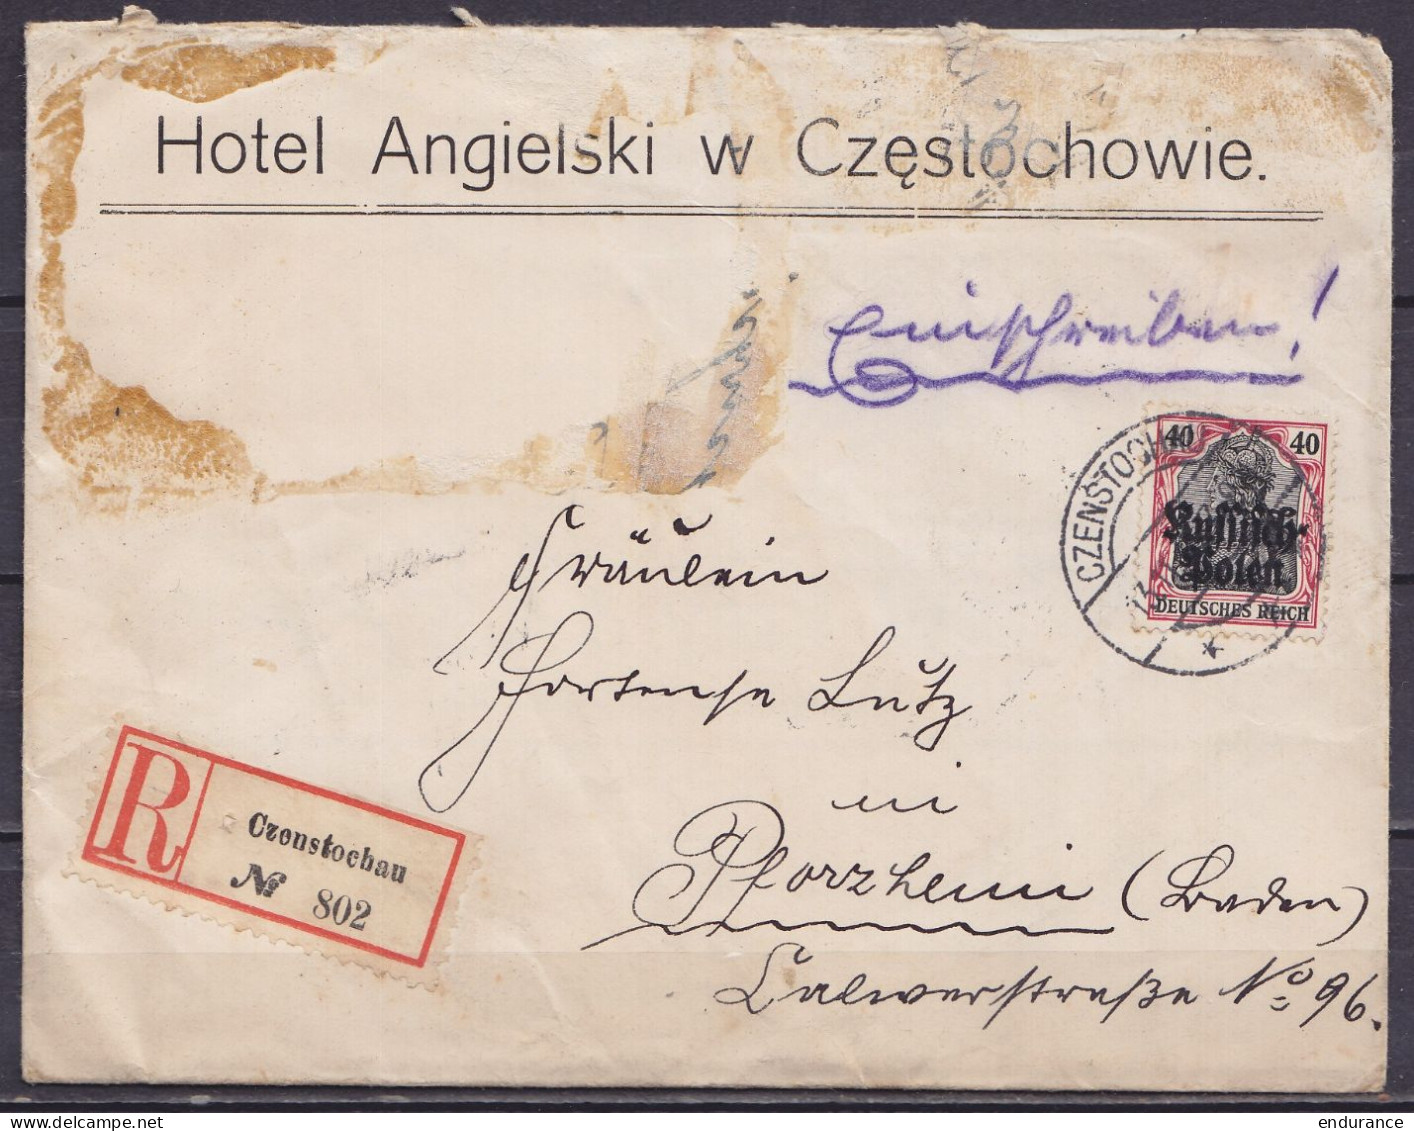 Hotel Angielski w Częstochowie.
Einschreiben!
40 40
Russisch-
Polen
DEUTSCHES REICH
CZENSTOCH
Fräulein
Hortense Lutz
in
Pforzheim (Baden)
Calwerstraße No 96.
R Czenstochau
№ 802
endurance